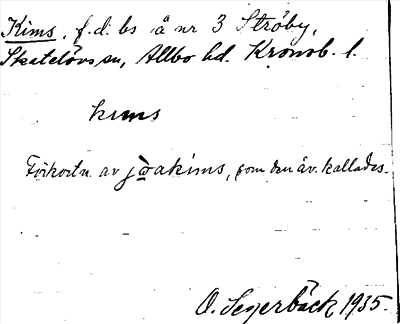 Kims, f.d. bs å nr 3 Ströby,
Skatelövs sn, Allbo hd. Kronob. l.
kims
Förkortn. av jòakims, som den äv. kallades.
O. Segerbäck 1935.